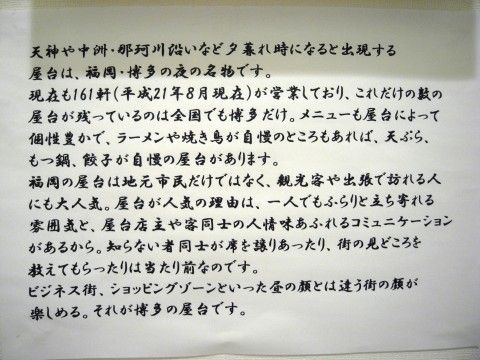 天神や中洲・那珂川沿いなど夕暮れ時になると出現する
屋台は、福岡・博多の夜の名物です。
現在も161軒(平成21年8月現在)が営業しており、これだけの数の
屋台が残っているのは全国でも博多だけ。メニューも屋台によって
個性豊かで、ラーメンや焼き鳥が自慢のところもあれば、天ぷら、
もつ鍋、餃子が自慢の屋台があります。
福岡の屋台は地元市民だけではなく、観光客や出張で訪れる人
にも大人気。屋台が人気の理由は、一人でもふらりと立ち寄れる
雰囲気と、屋台店主や客同士の人情味あふれるコミュニケーション
があるから。知らない者同士が席を譲りあったり、街の見どころを
教えてもらったりは当たり前なのです。
ビジネス街、ショッピングゾーンといった昼の顔とは違う街の顔が
楽しめる。それが博多の屋台です。